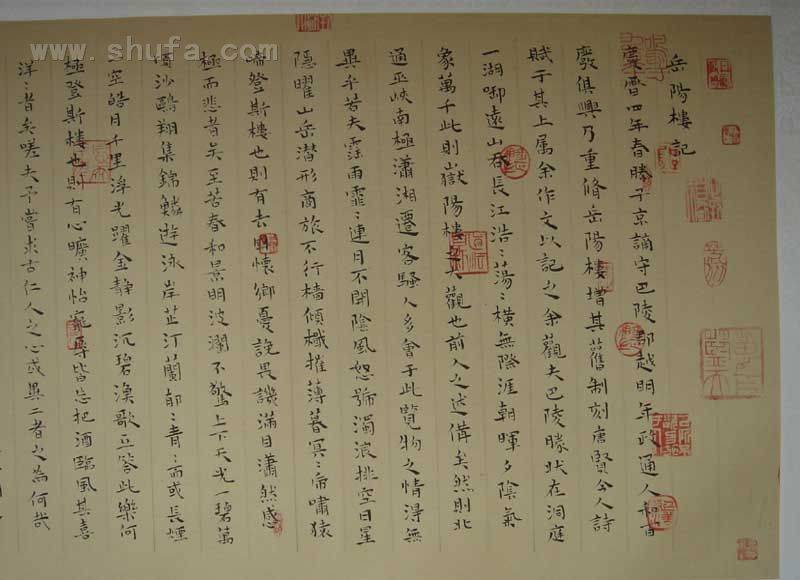 www.shufa.com
岳陽樓記
慶曆四年春滕子京謫守巴陵郡越明年政通人和百
廢俱興乃重脩岳陽樓增其舊制刻唐賢今人詩
賦于其上属余作文以記之余觀夫巴陵勝狀在洞庭
一湖啣遠山吞長江浩〻蕩〻橫無際涯朝暉夕陰氣
象萬千此則嶽陽樓之大觀也前人之述備矣然則北
通巫峽南極瀟湘遷客騷人多會于此覽物之情得無
異乎若夫霪雨霏〻連月不開陰風怒號濁浪排空日星
隱曜山岳潛形商旅不行檣傾檝摧薄暮冥〻虎嘯猿
啼登斯樓也則有去國懷鄉憂讒畏譏滿目瀟然感
極而悲者矣至若春和景明波瀾不驚上下天光一碧萬
頃沙鷗翔集錦鱗遊泳岸芷汀蘭郁〻青〻而或長煙
一空皓月千里浮光躍金靜影沉碧漁歌互答此樂何
極登斯樓也則有心曠神怡寵辱皆忘把酒臨風其喜
洋〻者矣嗟夫予嘗求古仁人之心或異二者之為何哉